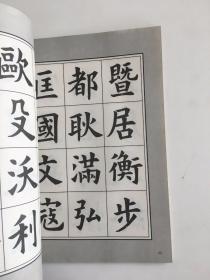 暨居衡步
都耿滿弘
匡國文寇
歐殳沃利